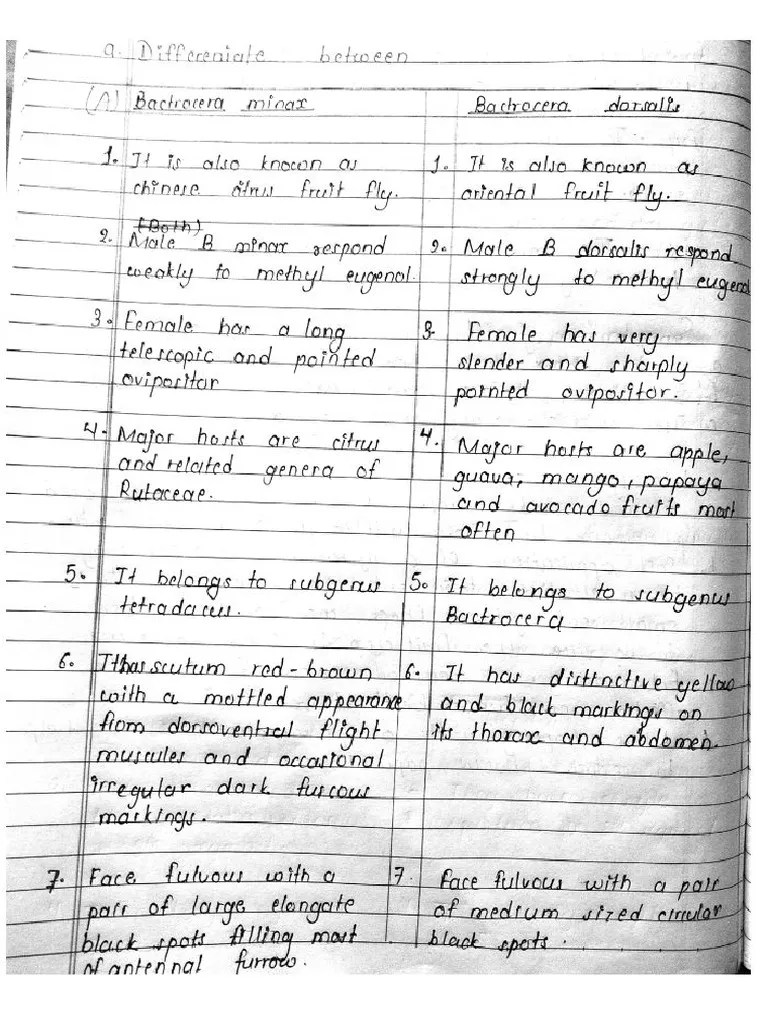 9. Differeniate between
(A) Bactrocera minax
1. It is also known as
chinese citrus fruit fly.
(Both)
2. Male B minax respond
weakly to methyl eugenol.
3. Female has a long
telescopic and pointed
ovipositor
4. Major hosts are citrus
and related genera of
Rutaceae.
5. It belongs to subgenus
tetradacus.
6. It has scutum red-brown
with a mottled appearance
from dorsoventral flight
muscules and occasional
irregular dark fuscous
markings.
7. Face fulvous with a
pair of large elongate
black spots filling most
of antennal furrow.
Bactrocera dorsalis
1. It is also known as
oriental fruit fly.
2. Male B dorsalis respond
strongly to methyl eugenol
3. Female has very
slender and sharply
pointed ovipositor.
4. Major hosts are apple,
guava, mango, papaya
and avocado fruits most
often
5. It belongs to subgenus
Bactrocera
6. It has distinctive yellow
and black markings on
its thorax and abdomen.
7. Face fulvous with a pair
of medium sized circular
black spots.